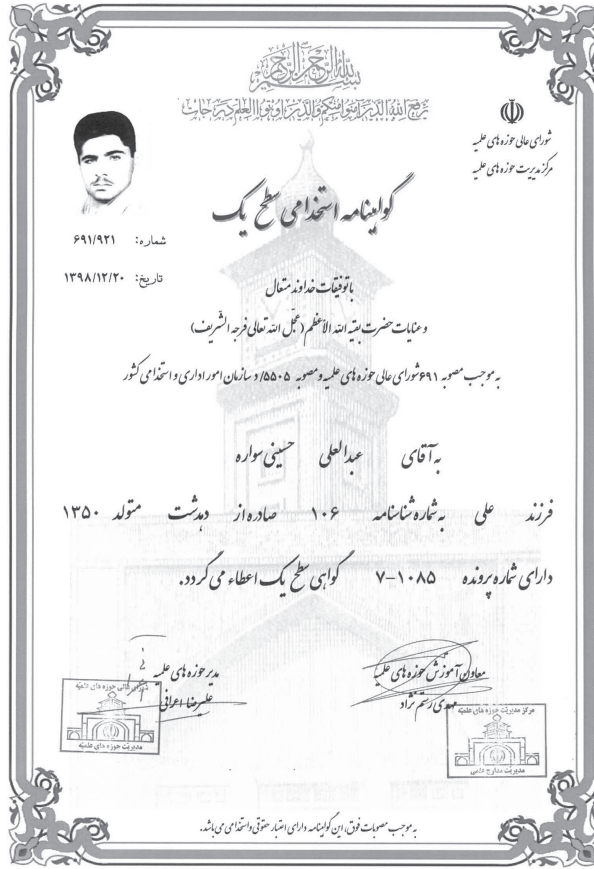 بسم الله الرحمن الرحیم
یرفع الله الذین آمنوا منکم والذین اوتوا العلم درجات
شورای عالی حوزه های علمیه
مرکز مدیریت حوزه های علمیه
گواهینامه استخدامی سطح یک
شماره: ۶۹۱/۹۲۱
تاریخ: ۱۳۹۸/۱۲/۲۰
با توفیقات خداوند متعال
و عنایات حضرت بقیة الله الأعظم (عجّل الله تعالی فرجه الشّریف)
به موجب مصوبه ۶۹۱ شورای عالی حوزه های علمیه و مصوبه ۵۵۰۵/د سازمان امور اداری و استخدامی کشور
به آقای عبدالعلی حسینی سواره
فرزند علی به شماره شناسنامه ۱۰۶ صادره از دهدشت متولد ۱۳۵۰
دارای شماره پرونده ۷-۱۰۸۵ گواهی سطح یک اعطاء می گردد.
معاون آموزش حوزه های علمیه
مهدی رستم نژاد
مدیر حوزه های علمیه
علیرضا اعرافی
مرکز مدیریت حوزه های علمیه
مدیریت مدارج علمی
شورای عالی حوزه های علمیه
مدیریت حوزه های علمیه
به موجب مصوبات فوق، این گواهینامه دارای اعتبار حقوقی و استخدامی می باشد.